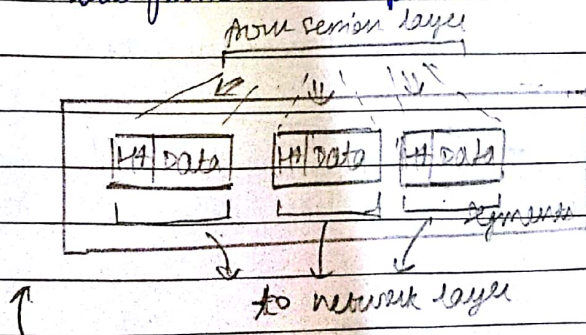 from session layer
H4 Data H4 Data H4 Data
segments
to network layer